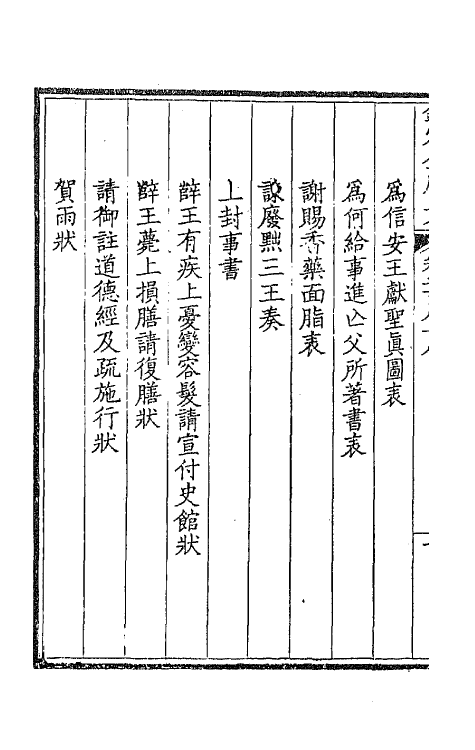 爲信安王獻聖眞圖表
爲何給事進亡父所著書表
謝賜香藥面脂表
諫廢黜三王奏
上封事書
薛王有疾上憂變容髮請宣付史館狀
薛王薨上損膳請復膳狀
請御註道德經及疏施行狀
賀雨狀